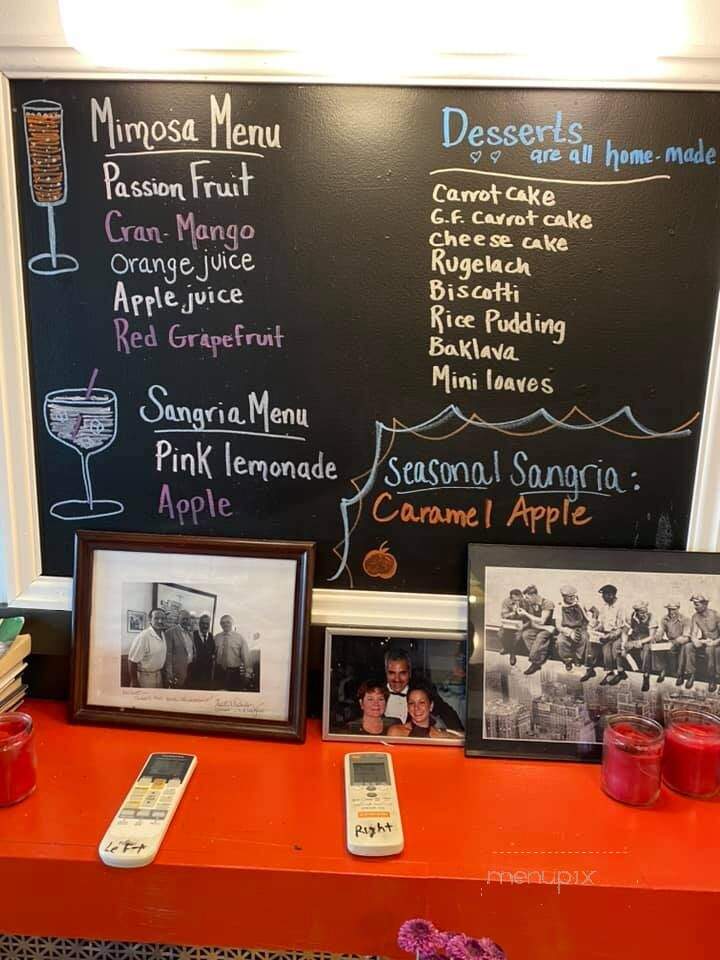 Mimosa Menu
Passion Fruit
Cran-Mango
Orange juice
Apple juice
Red Grapefruit
Sangria Menu
Pink lemonade
Apple
Desserts
are all home-made
Carrot cake
G.F. carrot cake
cheese cake
Rugelach
Biscotti
Rice Pudding
Baklava
Mini loaves
Seasonal Sangria:
Caramel Apple
Left
Right
menupix